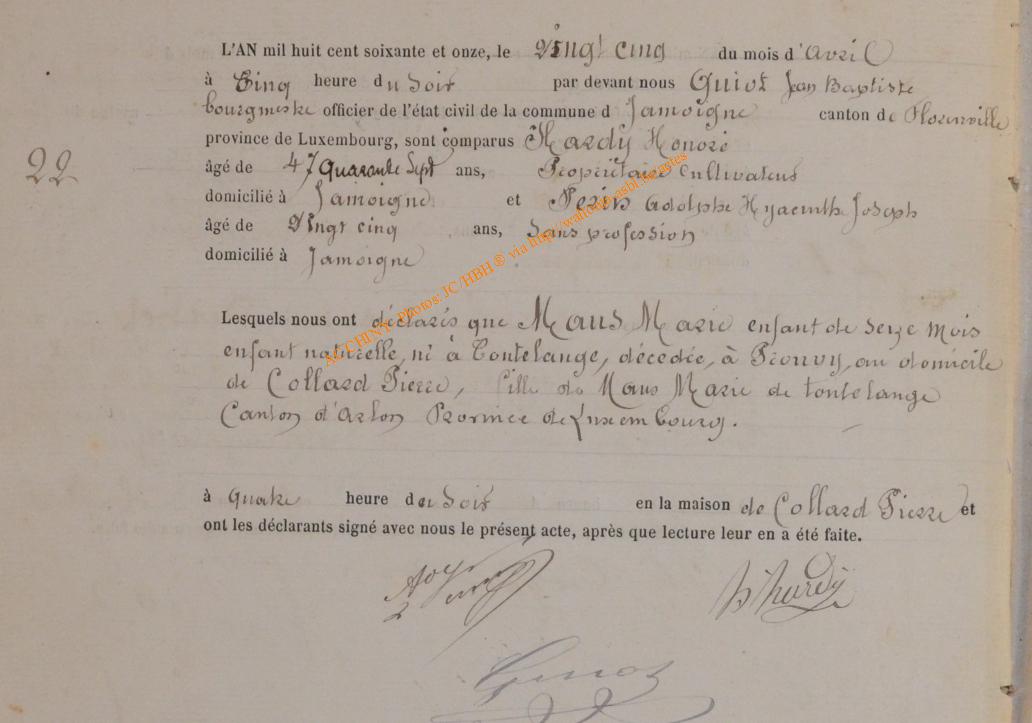 L'AN mil huit cent soixante et onze, le vingt cinq du mois d'Avril
à Cinq heure du Soir par devant nous Guiot Jean Baptiste
bourgmestre officier de l'état civil de la commune d Jamoigne canton de Florenville
province de Luxembourg, sont comparus Hardÿ Honoré
22 âgé de 47 Quarante Sept ans, Propriétaire Cultivateur
domicilié à Jamoigne et Perin Adolphe Hyacinthe Joseph
âgé de Vingt cinq ans, Sans profession
domicilié à Jamoigne
Photos: JC/HBH ® via http://
Lesquels nous ont déclarés que Maus Marie enfant de seize mois
enfant naturelle, né à Tontelange, décedée, à Prouvy, au domicile
de Collard Pierre, fille de Maus Marie de tontelange
Canton d'Arlon Province de Luxembourg.
à quatre heure du Soir en la maison de Collard Pierre et
ont les déclarants signé avec nous le présent acte, après que lecture leur en a été faite.
h hardÿ
Guiot